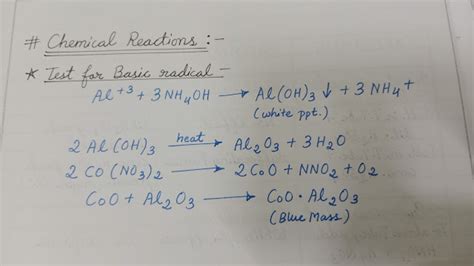 # Chemical Reactions :-
* Test for Basic radical -
Al⁺³ + 3NH₄OH → Al(OH)₃ ↓ + 3NH₄+
(white ppt.)
2 Al(OH)₃ heat → Al₂O₃ + 3H₂O
2 CO(NO₃)₂ → 2CoO + NNO₂ + O₂
CoO + Al₂O₃ → CoO • Al₂O₃
(Blue Mass.)